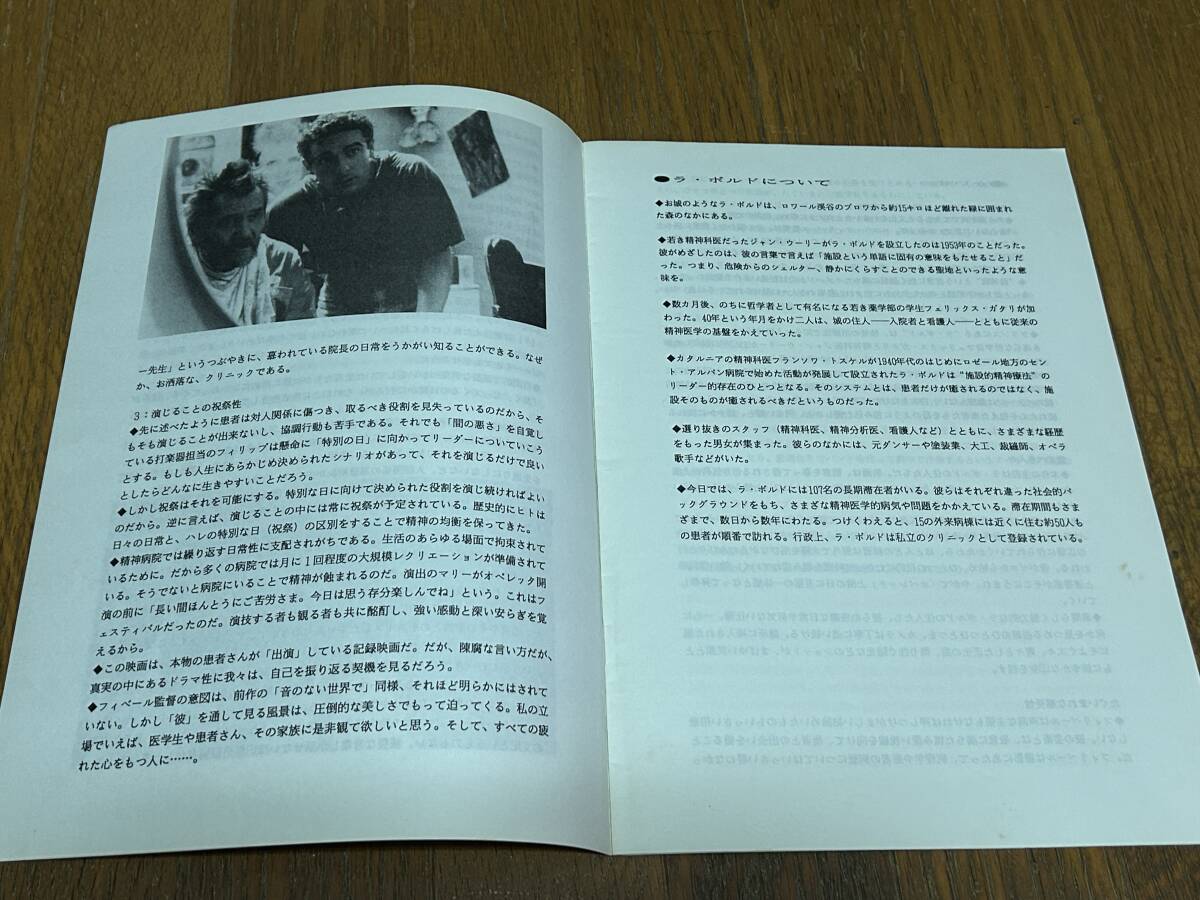 ー先生」というつぶやきに、慕われている院長の日常をうかがい知ることができる。なぜ
か、お洒落な、クリニックである。
3：演じることの祝祭性
◆先に述べたように患者は対人関係に傷つき、取るべき役割を見失っているのだから、そ
もそも演じることが出来ないし、協調行動も苦手である。それでも「間の悪さ」を自覚し
ている打楽器担当のフィリップは懸命に「特別の日」に向かってリーダーについていこう
とする。もしも人生にあらかじめ決められたシナリオがあって、それを演じるだけで良い
としたらどんなに生きやすいことだろう。
◆しかし祝祭はそれを可能にする。特別な日に向けて決められた役割を演じ続ければよい
のだから。逆に言えば、演じることの中には常に祝祭が予定されている。歴史的にヒトは
日々の日常と、ハレの特別な日（祝祭）の区別をすることで精神の均衡を保ってきた。
◆精神病院では繰り返す日常性に支配されがちである。生活のあらゆる場面で拘束されて
いるために。だから多くの病院では月に１回程度の大規模レクリエーションが準備されて
いる。そうでないと病院にいることで精神が蝕まれるのだ。演出のマリーがオペレック開
演の前に「長い間ほんとうにご苦労さま。今日は思う存分楽しんでね」という。これはフ
ェスティバルだったのだ。演技する者も観る者も共に酩酊し、強い感動と深い安らぎを覚
えるから。
◆この映画は、本物の患者さんが「出演」している記録映画だ。だが、陳腐な言い方だが、
真実の中にあるドラマ性に我々は、自己を振り返る契機を見るだろう。
◆フィベール監督の意図は、前作の「音のない世界で」同様、それほど明らかにはされて
いない。しかし「彼」を通して見る風景は、圧倒的な美しさでもって迫ってくる。私の立
場でいえば、医学生や患者さん、その家族に是非観て欲しいと思う。そして、すべての疲
れた心をもつ人に……。
●ラ・ボルドについて
◆お城のようなラ・ボルドは、ロワール渓谷のブロワから約15キロほど離れた緑に囲まれ
た森のなかにある。
◆若き精神科医だったジャン・ウーリーがラ・ボルドを設立したのは1953年のことだった。
彼がめざしたのは、彼の言葉で言えば「施設という単語に固有の意味をもたせること」だ
った。つまり、危険からのシェルター、静かにくらすことのできる聖地といったような意
味を。
◆数カ月後、のちに哲学者として有名になる若き薬学部の学生フェリックス・ガタリが加
わった。40年という年月をかけ二人は、城の住人――入院者と看護人――とともに従来の
精神医学の基盤をかえていった。
◆カタルニアの精神科医フランソワ・トスケルが1940年代のはじめにロゼール地方のセン
ト・アルバン病院で始めた活動が発展して設立されたラ・ボルドは“施設的精神療法”の
リーダー的存在のひとつとなる。そのシステムとは、患者だけが癒されるのではなく、施
設そのものが癒されるべきだというものだった。
◆選り抜きのスタッフ（精神科医、精神分析医、看護人など）とともに、さまざまな経歴
をもった男女が集まった。彼らのなかには、元ダンサーや塗装業、大工、裁縫師、オペラ
歌手などがいた。
◆今日では、ラ・ボルドには107名の長期滞在者がいる。彼らはそれぞれ違った社会的バ
ックグラウンドをもち、さまざな精神医学的病気や問題をかかえている。滞在期間もさま
ざまで、数日から数年にわたる。つけくわえると、15の外来病棟には近くに住む約50人も
の患者が順番で訪れる。行政上、ラ・ボルドは私立のクリニックとして登録されている。